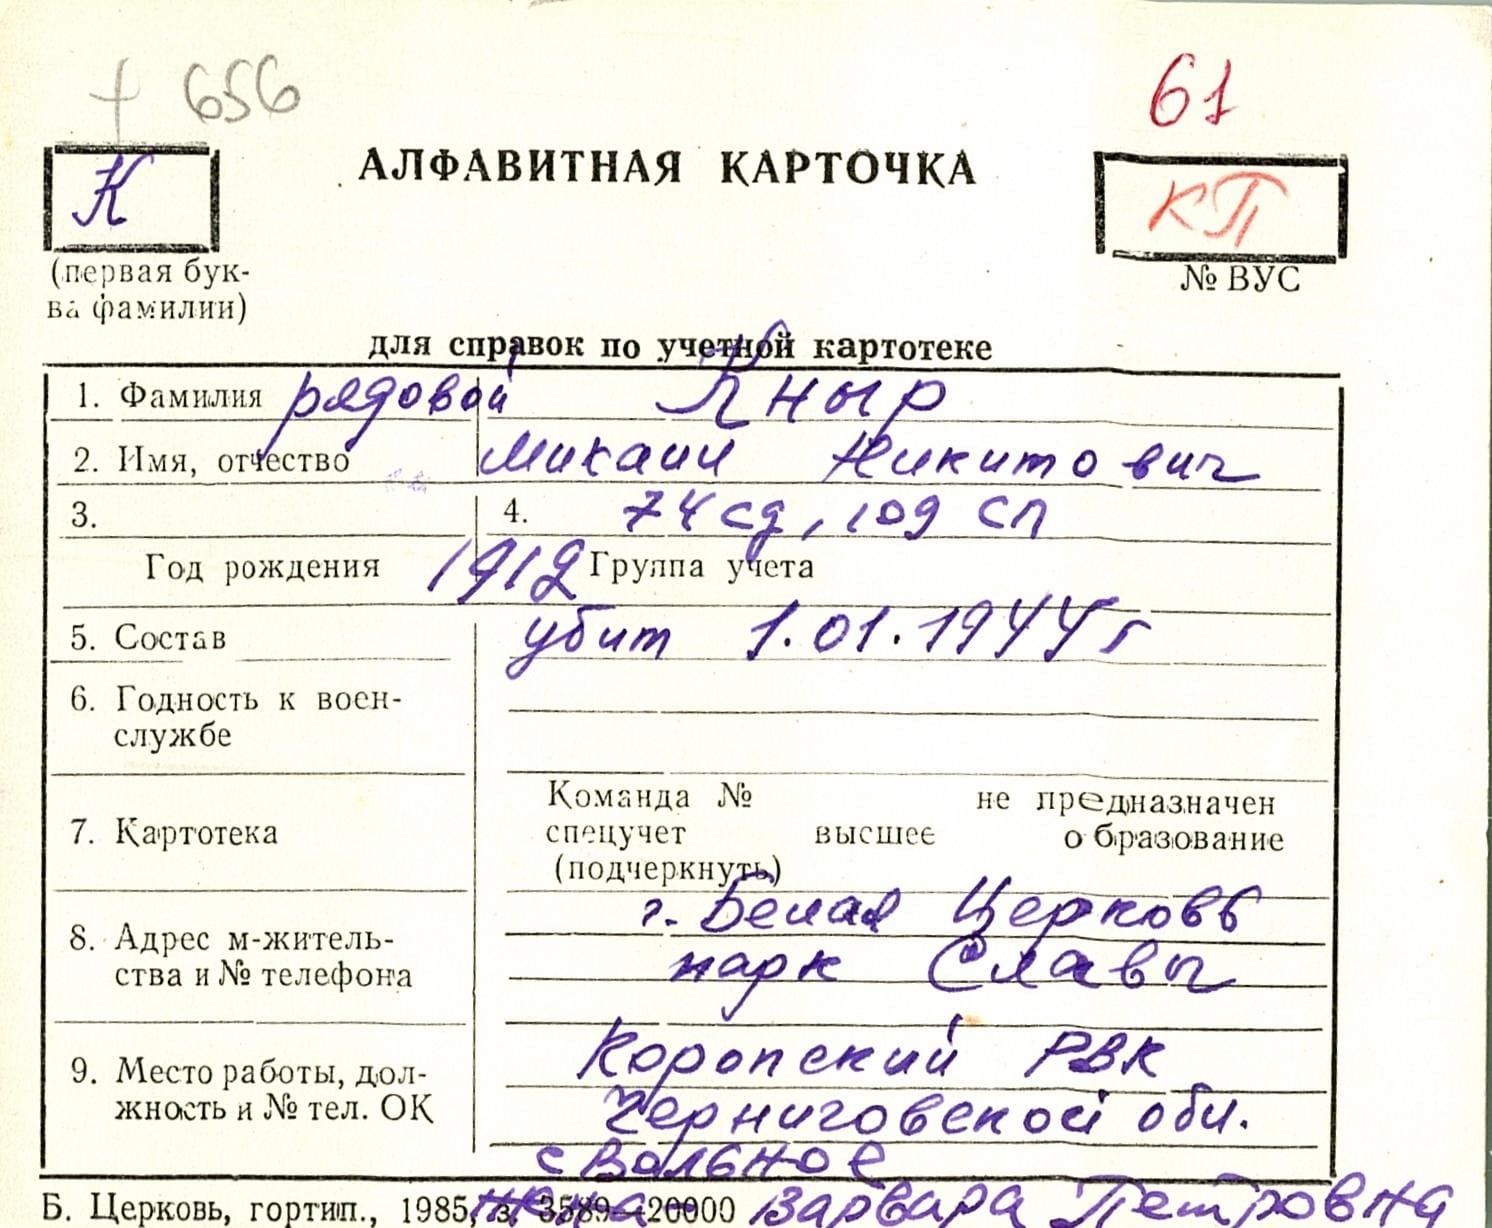 + 656
61
К
АЛФАВИТНАЯ КАРТОЧКА
КП
(первая бук-
ва фамилии)
№ ВУС
для справок по учетной картотеке
1. Фамилия рядовой Кныр
2. Имя, отчество Михаил Никитович
3. 4. 74 сд, 109 сп
Год рождения 1912 Группа учета
5. Состав убит 1.01.1944 г
6. Годность к воен-
службе
7. Картотека
Команда № не предназначен
спецучет высшее образование
(подчеркнуть)
8. Адрес м-житель-
ства и № телефона
г. Белая Церковь
парк Славы
9. Место работы, дол-
жность и № тел. ОК
Коропский РВК
Черниговской обл.
с Вольное
жена - Варвара Петровна
Б. Церковь, гортип., 1985, з. 3589—20000